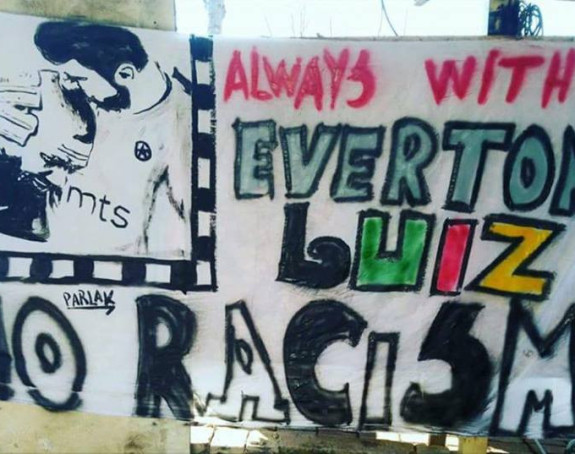 ALWAYS WITH
EVERTON
LUIZ
mts
PARLAK
NO RACISM